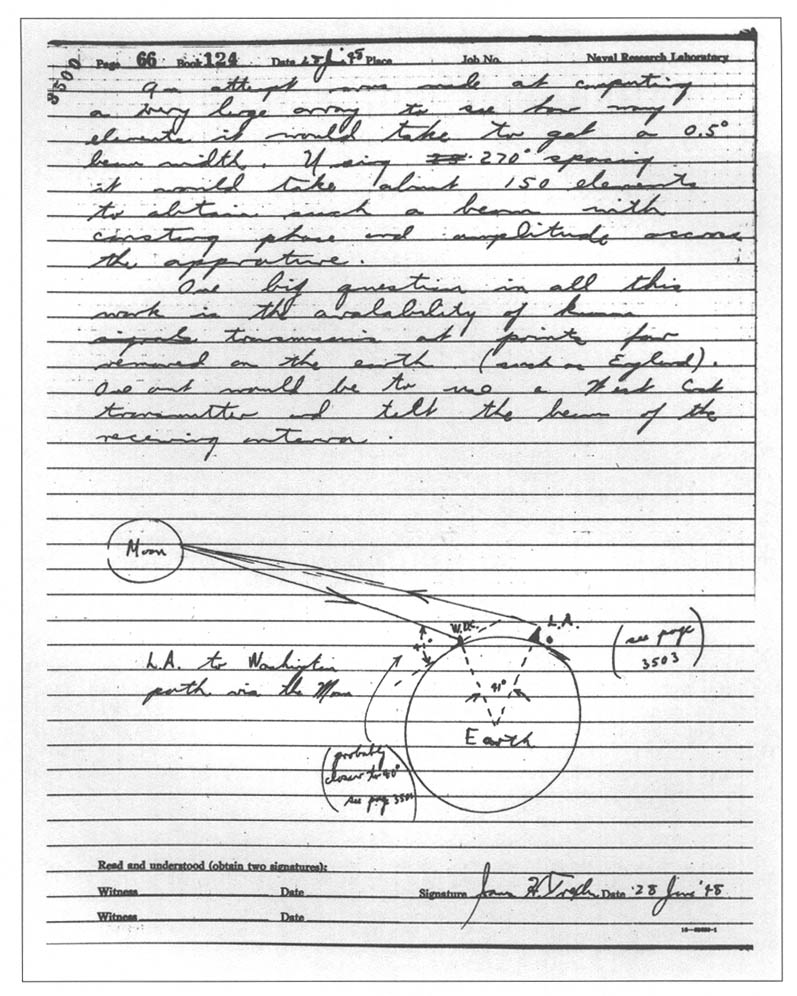 3500
Page 66 Book 124 Date 28 Jun '48 Place Job No. Naval Research Laboratory
An attempt was made at computing
a very large array to see how many
elements it would take to get a 0.5°
beam width. Using 270° spacing
it would take about 150 elements
to obtain such a beam with
phase and amplitude across
the apprature.
One big question in all this
work is the avalability of known
signals transmissions at points far
removed on the earth (such as England).
One out would be to use a West Cost
transmitter and tilt the beam of the
receiving antenna.
Moon
W.D.C.
L.A.
(see page
3503)
L.A. to Washington
path via the Moon
41°
Earth
(probably
closer to 40°
see page
Read and understood (obtain two signatures):
Witness Date Signature James H. Trexler Date 28 Jun '48
Witness Date